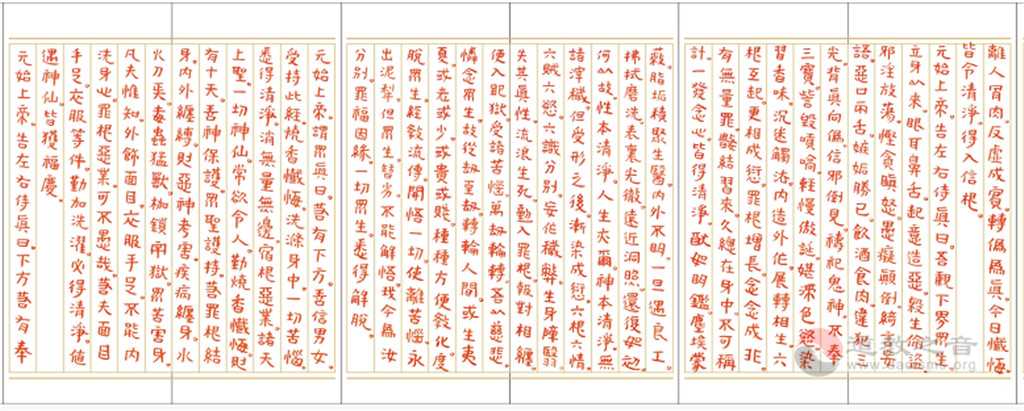 離人胃肉反虛成實轉偽為真今日懺悔
皆令清淨得入信根
元始上帝告左右侍真曰吾觀下界眾生
立身以來眼耳鼻舌起意造惡殺生偷盜
邪淫放蕩慳貪瞋怒愚癡顛倒綺妄
語惡口兩舌嫉妬勝己飲酒食肉違犯三
光背真向偽信邪倒見禱祀鬼神不奉
三寶訾毀輕慢傲誕媟滯色慾染
習香味沉迷觸法內造外化展轉相生六
根互起更相成愆罪根增長念念成非
有無量罪盤結習來久總在身中不可稱
計一發念心皆得清淨譬如明鑑塵埃蒙
蔽脂垢積聚生翳內外不明一旦遇良工
拂拭磨洗表裏光徹遠近洞照還復如初
何以故性本清淨人生亦爾神本清淨無
諸滓穢但受形之後漸染成愆六根六情
六賊六慾六識分別妄化穢弊生身障翳
失其真性流浪生死動入罪根報對相纏
便入地獄受諸苦惱萬劫輪轉吾以慈悲
憐念眾生故從劫至劫轉輪人間或生夷
夏或老或少或貴或賤種種方便教化度
脫眾生經教流傳開悟一切使離苦惱永
出泥犁但眾生昏劣不能解悟我今為汝
分別罪福因緣一切眾生悉得解脫
元始上帝謂眾真曰若有下方善信男女
受持此經燒香懺悔洗滌身中一切苦惱
悉得清淨消無量無邊宿根惡業諸天
上聖一切神仙常欲令人勤燒香懺悔則
有十天善神保護眾聖護持若罪根結
身內外纏縛則惡神考害疾病纏身水
火刀兵毒蟲猛獸枷鎖牢獄眾苦害身
凡夫惟知外飾面目衣服手足不能內
洗身心罪根惡業可不愚哉若夫面目
手足衣服等件勤加洗濯必得清淨值
遇神仙皆獲福慶
元始上帝告左右侍真曰下方若有奉
道教之音
www.daoisms.org